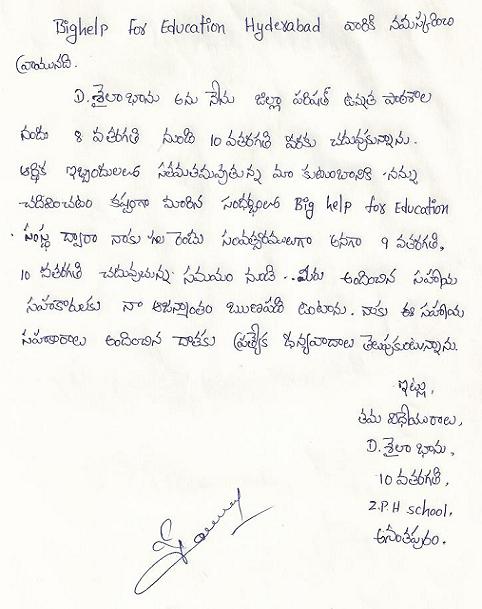 Bighelp For Education Hyderabad వారికి నమస్కరించి
వ్రాయునది.
D. శైలా భాను అను నేను జిల్లా పరిషత్ ఉన్నత పాఠశాల
నందు 8 వ తరగతి నుండి 10 వ తరగతి వరకు చదువుకున్నాను.
ఆర్థిక ఇబ్బందులలో సతమతమవుతున్న మా కుటుంబానికి నన్ను
చదివించటం కష్టంగా మారిన సందర్భంలో Big help for Education
సంస్థ ద్వారా నాకు ఈ రెండు సంవత్సరములుగా అనగా 9 వ తరగతి,
10 వ తరగతి చదువుచున్న సమయం నుండి .. మీరు అందించిన సహాయ
సహకారాలకు నా ఆజన్మాంతం ఋణపడి ఉంటాను. నాకు ఈ సహాయ
సహకారాలు అందించిన దాతకు ప్రత్యేక ధన్యవాదాలు తెలుపుకుంటున్నాను.
ఇట్లు,
తమ విధేయురాలు,
D. శైలా భాను,
10 వ తరగతి,
Z.P.H school,
అనంతపురం.